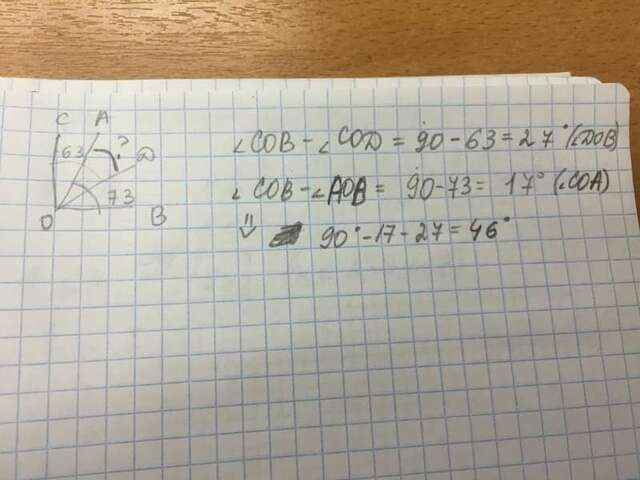 C A
63 ? D
73
O B
∠COB - ∠COD = 90 - 63 = 27° (∠DOB)
∠COB - ∠AOB = 90 - 73 = 17° (∠COA)
⇓ 90° - 17 - 27 = 46°